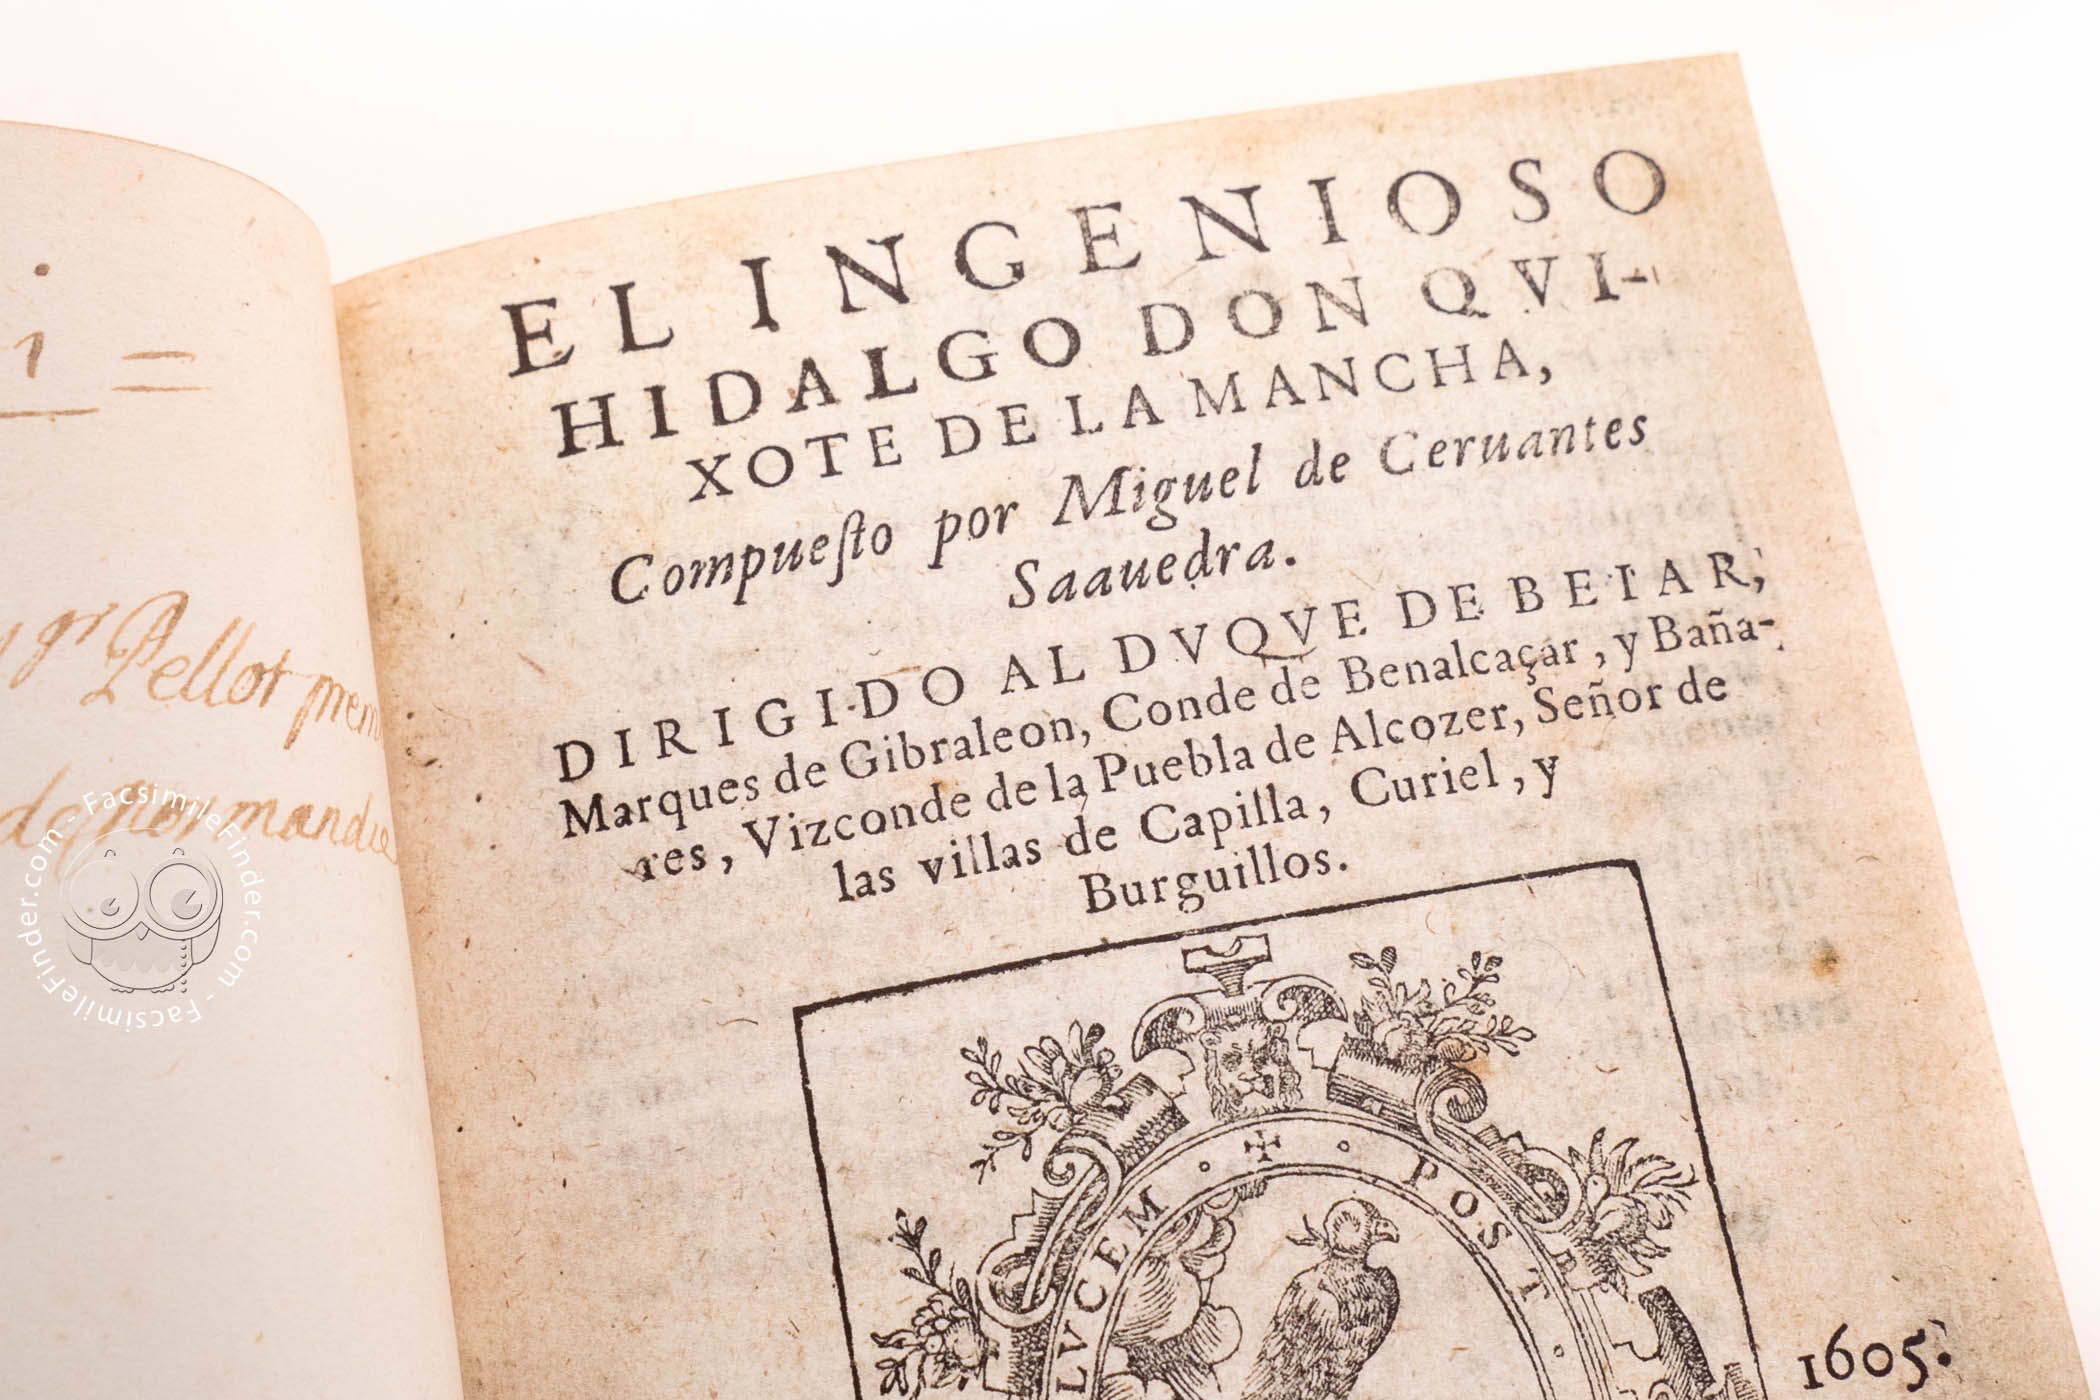 EL INGENIOSO
HIDALGO DON QVI-
XOTE DE LA MANCHA,
Compueſto por Miguel de Ceruantes
Saauedra.
DIRIGIDO AL DVQVE DE BEIAR,
Marques de Gibraleon, Conde de Benalcaçar, y Baña-
res, Vizconde de la Puebla de Alcozer, Señor de
las villas de Capilla, Curiel, y
Burguillos.
LVCEM
POST
1605.
Pellot
FacsimileFinder.com - FacsimileFinder.com -